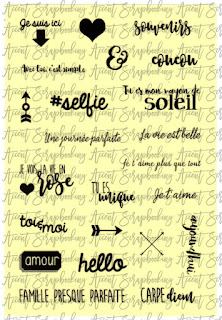 Je suis ici
souvenirs
&
coucou
Avec toi, c'est simple
Tu es mon rayon de
soleil
#selfie
Une journée parfaite
La vie est belle
Je t'aime plus que tout
JE VOIS LA VIE EN
rose
TU ES
unique
Je t'aime
toi & moi
aujourd'hui
amour
hello
FAMILLE PRESQUE PARFAITE
CARPE diem